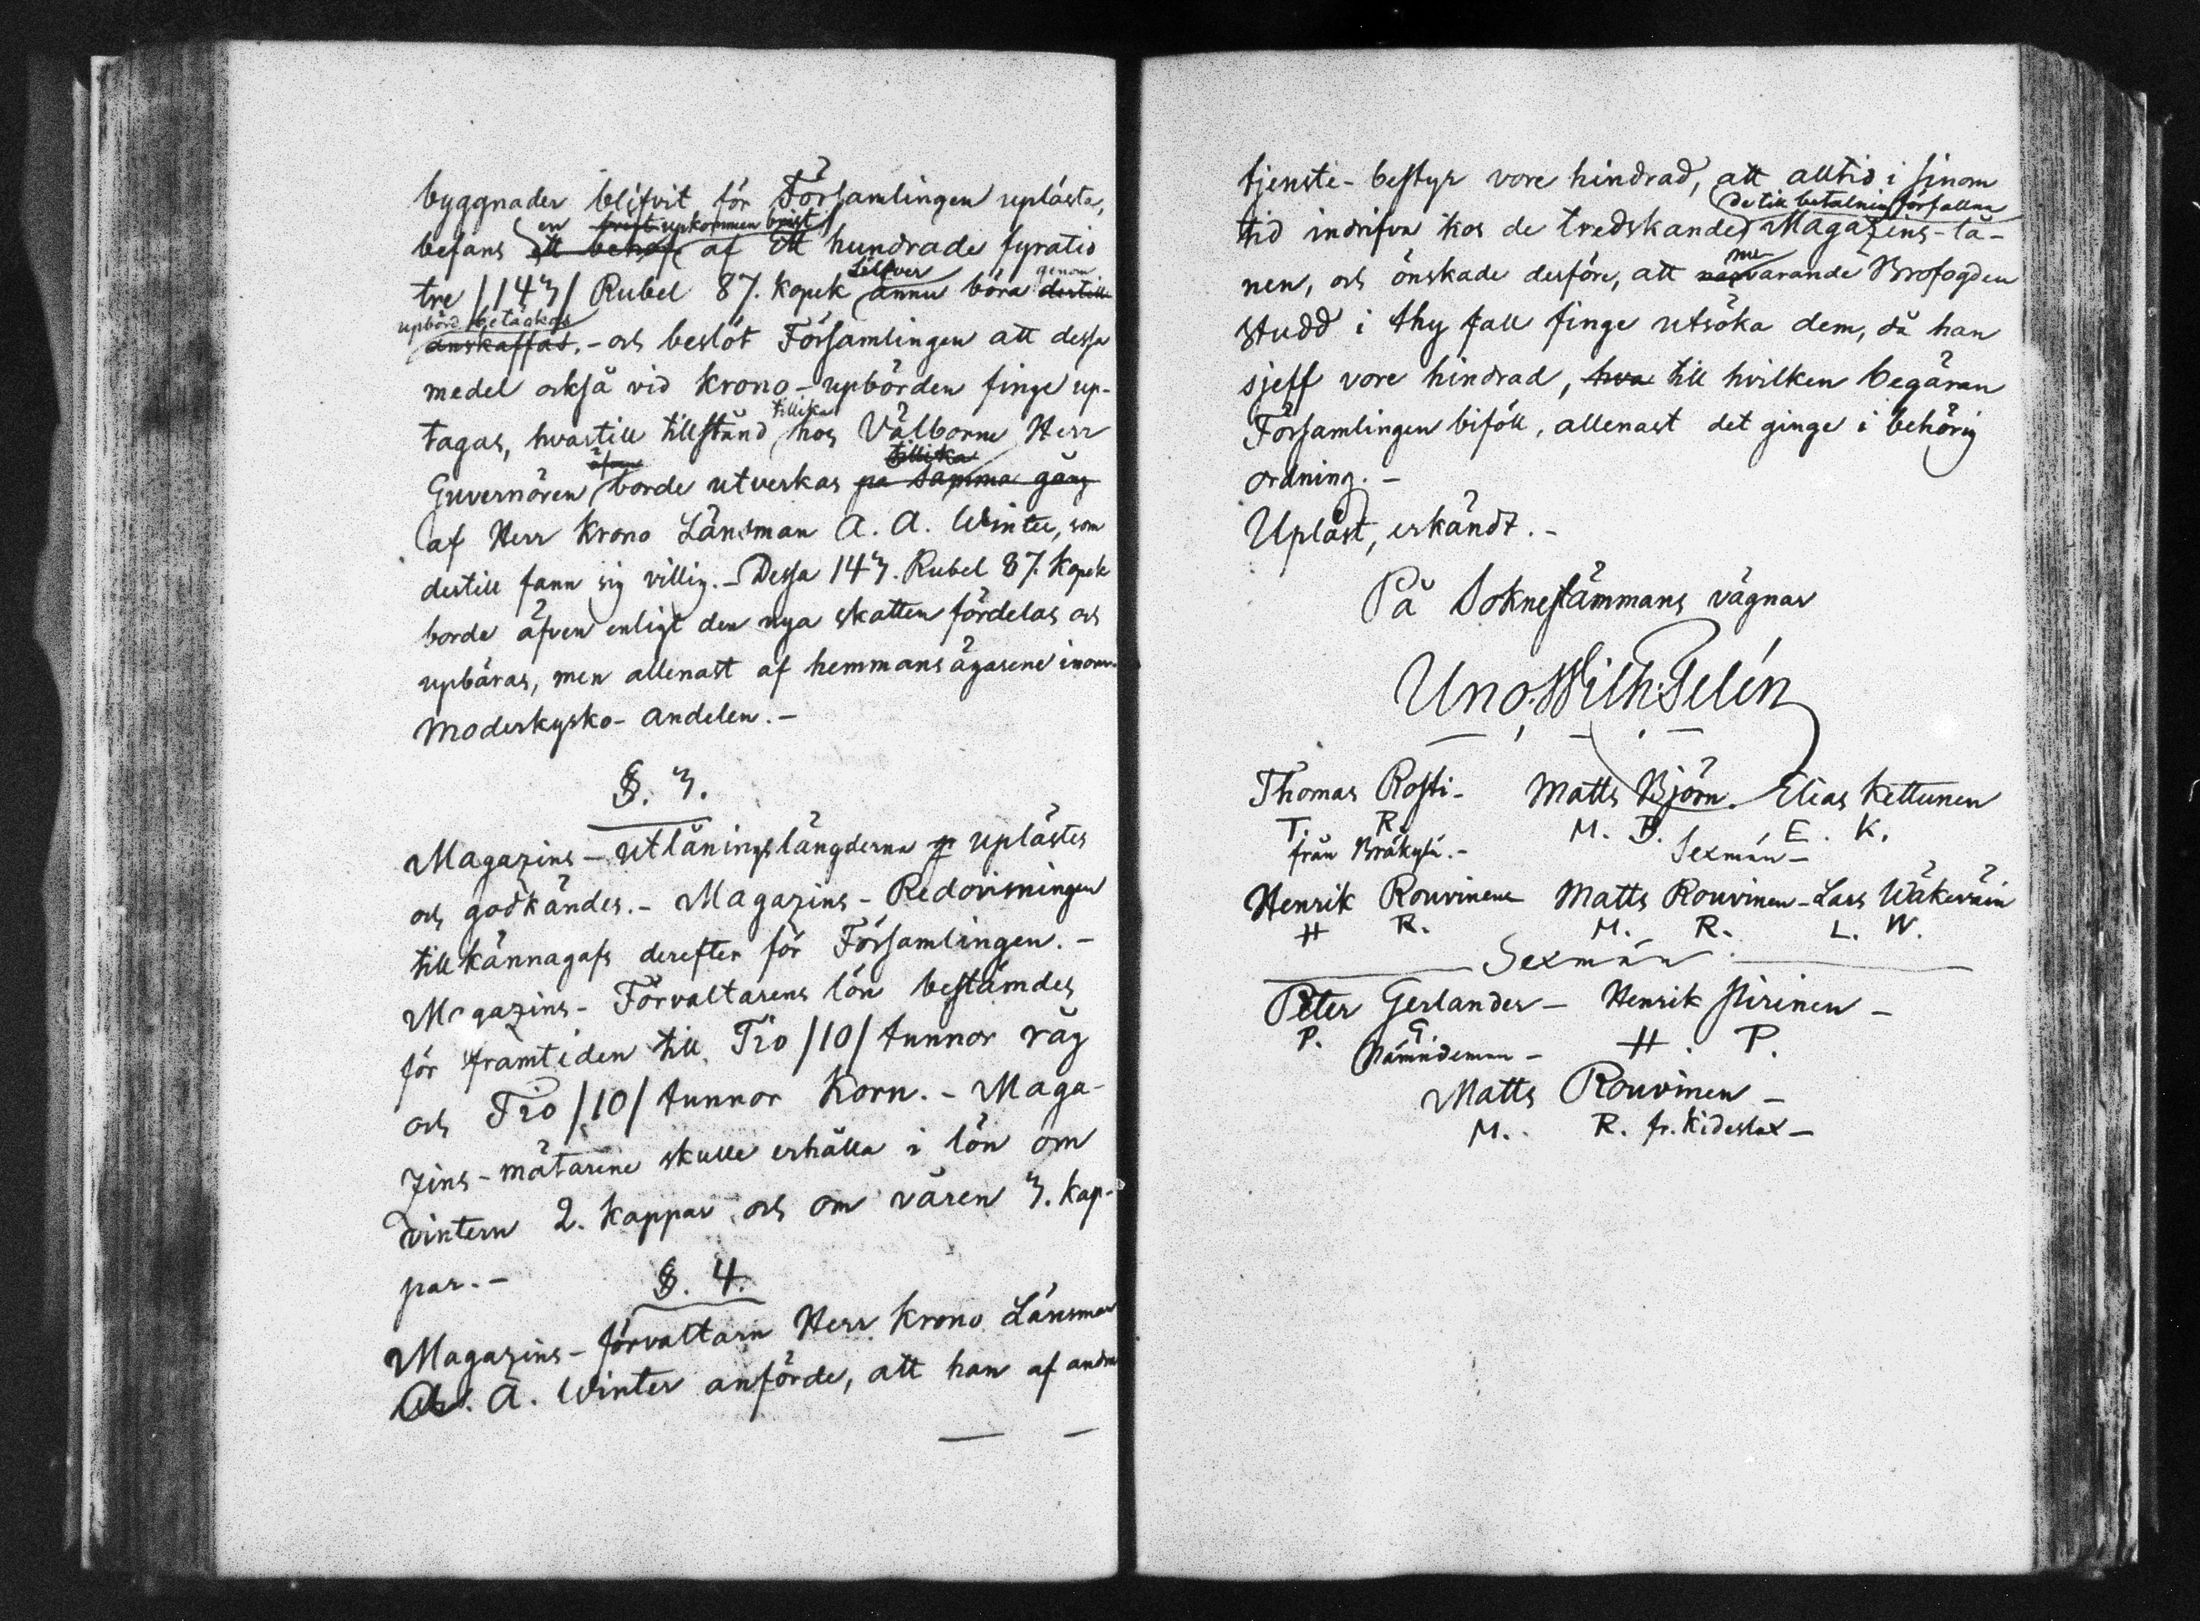 byggnader blifvit för Församlingen uplästa,
en upkommen brist
befans ett behof af Ett hundrade fyratio
Silfver genom
tre /143/ Rubel 87. kopek ännu böra dertill
upbörd betäckas
anskaffas. - och beslöt Församlingen att dessa
medel också vid Krono-upbörden finge up-
tillika
tagas, hvartill tillstånd hos Välborne Herr
äfven tillika
Guvernören borde utverkas på samma gång
af Herr Krono Länsman A. A. Winter, som
dertill fann sig villig. - Dessa 143. Rubel 87. Kopek
borde äfven enligt den nya skatten fördelas och
upbäras, men allenast af hemmansägarene inom
Moderkyrko-andelen. -
§. 3.
Magazins-utlåningslängderna uplästes
och godkändes. - Magazins-Redovisningen
tillkännagafs derefter för Församlingen. -
Magazins-Förvaltarens lön bestämdes
för framtiden till Tio /10/ tunnor råg
och Tio /10/ tunnor Korn. - Maga-
zins-mätarene skulle erhålla i lön om
vintern 2. kappar och om våren 3. kap-
par. -
§. 4.
Magazins-förvaltarn Herr Krono Länsman
A. A. Winter anförde, att han af andra
tjenste-bestyr vore hindrad, att alltid i sinom
de till betalning förfallna
tid indrifva hos de tredskande Magazins-lå-
nu
nen, och önskade derföre, att varande Brofogden
Studd i thy fall finge utsöka dem, då han
sjelf vore hindrad, hva till hvilken begäran
Församlingen biföll, allenast det ginge i behörig
ordning. -
Upläst, erkändt. -
På Soknestämmans vägnar
Uno Wilh. Telén
Thomas Rosti - Matts Björn. Elias Kettunen
T. R. M. B. E. K.
från Bråkylä. - Sexmän -
Henrik Rouvinen Matts Rouvinen - Lars Wäkeväin
H R. M. R. L. W.
Sexmän
Peter Gerlander - Henrik Pirinen -
P. G. H. P.
Nämndeman -
Matts Rouvinen -
M. R. fr. Kideslax -